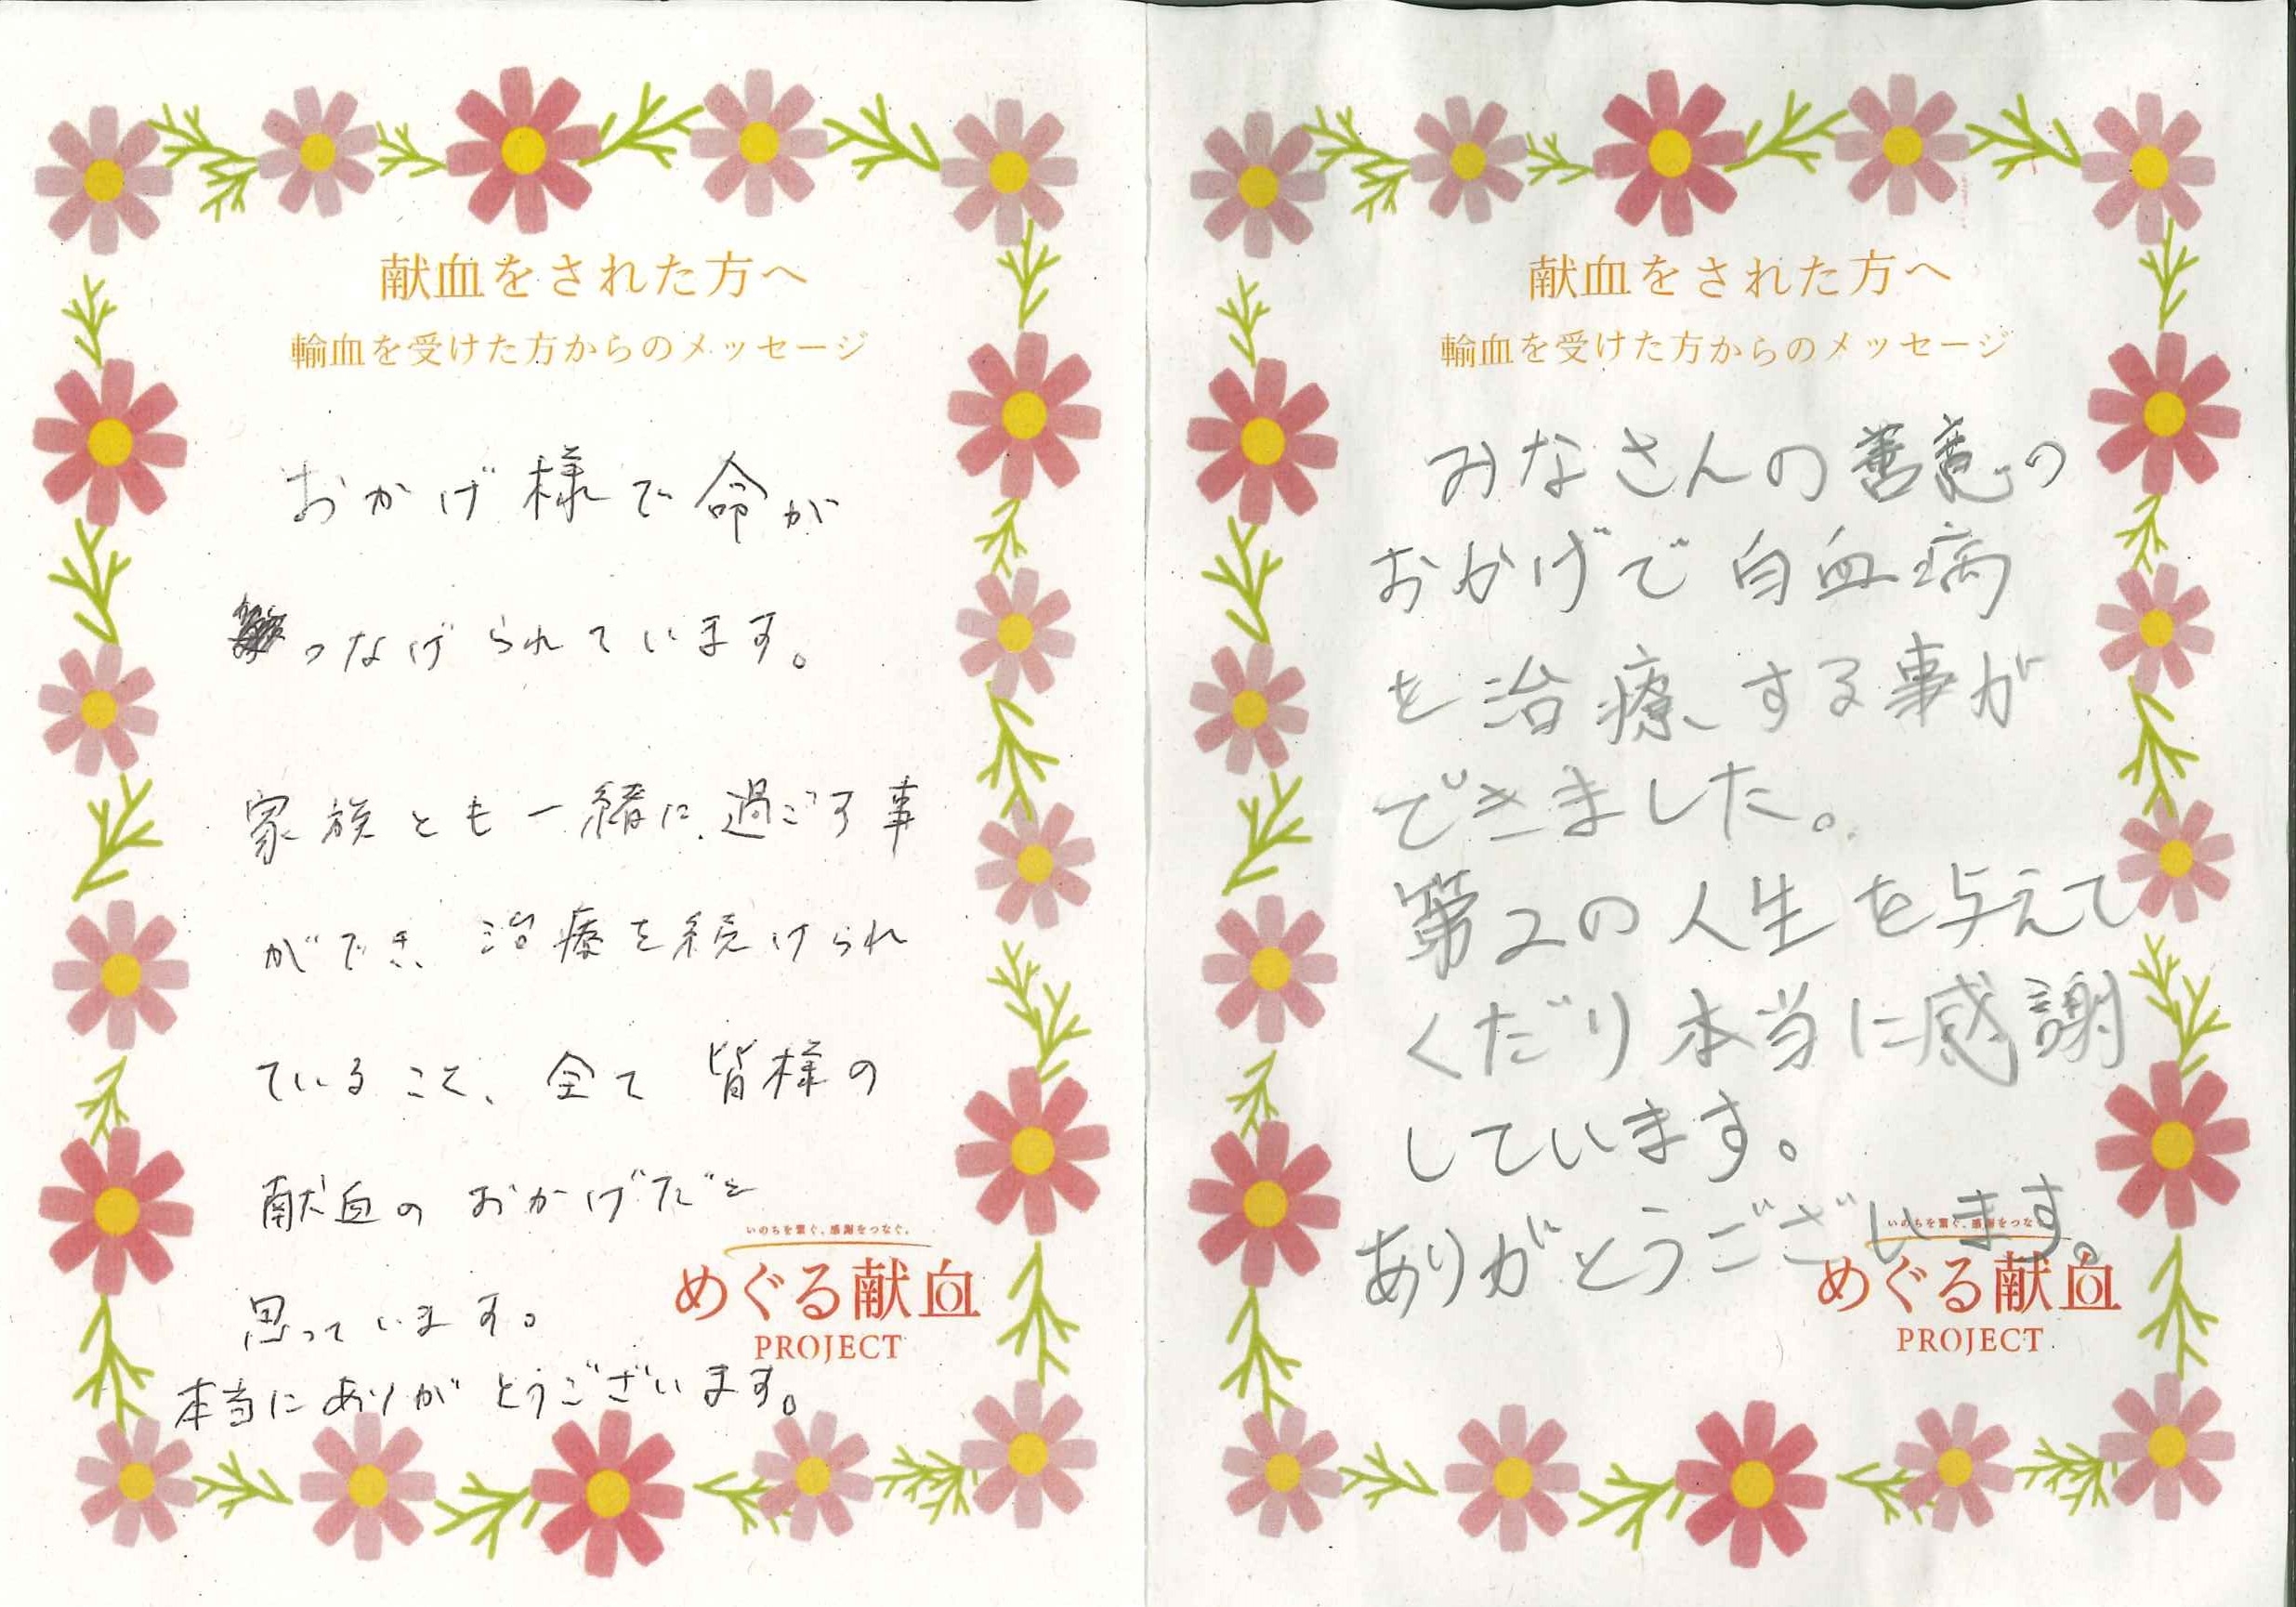 献血をされた方へ
輸血を受けた方からのメッセージ
おかげ様で命が
つなげられています。
家族とも一緒に過ごす事
ができ、治療を続けられ
ていること、全て皆様の
献血のおかげだと
思っています。
本当にありがとうございます。
いのちを繋ぐ、感謝をつなぐ。
めぐる献血
PROJECT
献血をされた方へ
輸血を受けた方からのメッセージ
みなさんの善意の
おかげで白血病
を治療する事が
できました。
第2の人生を与えて
くだり本当に感謝
しています。
ありがとうございます。
いのちを繋ぐ、感謝をつなぐ
めぐる献血
PROJECT